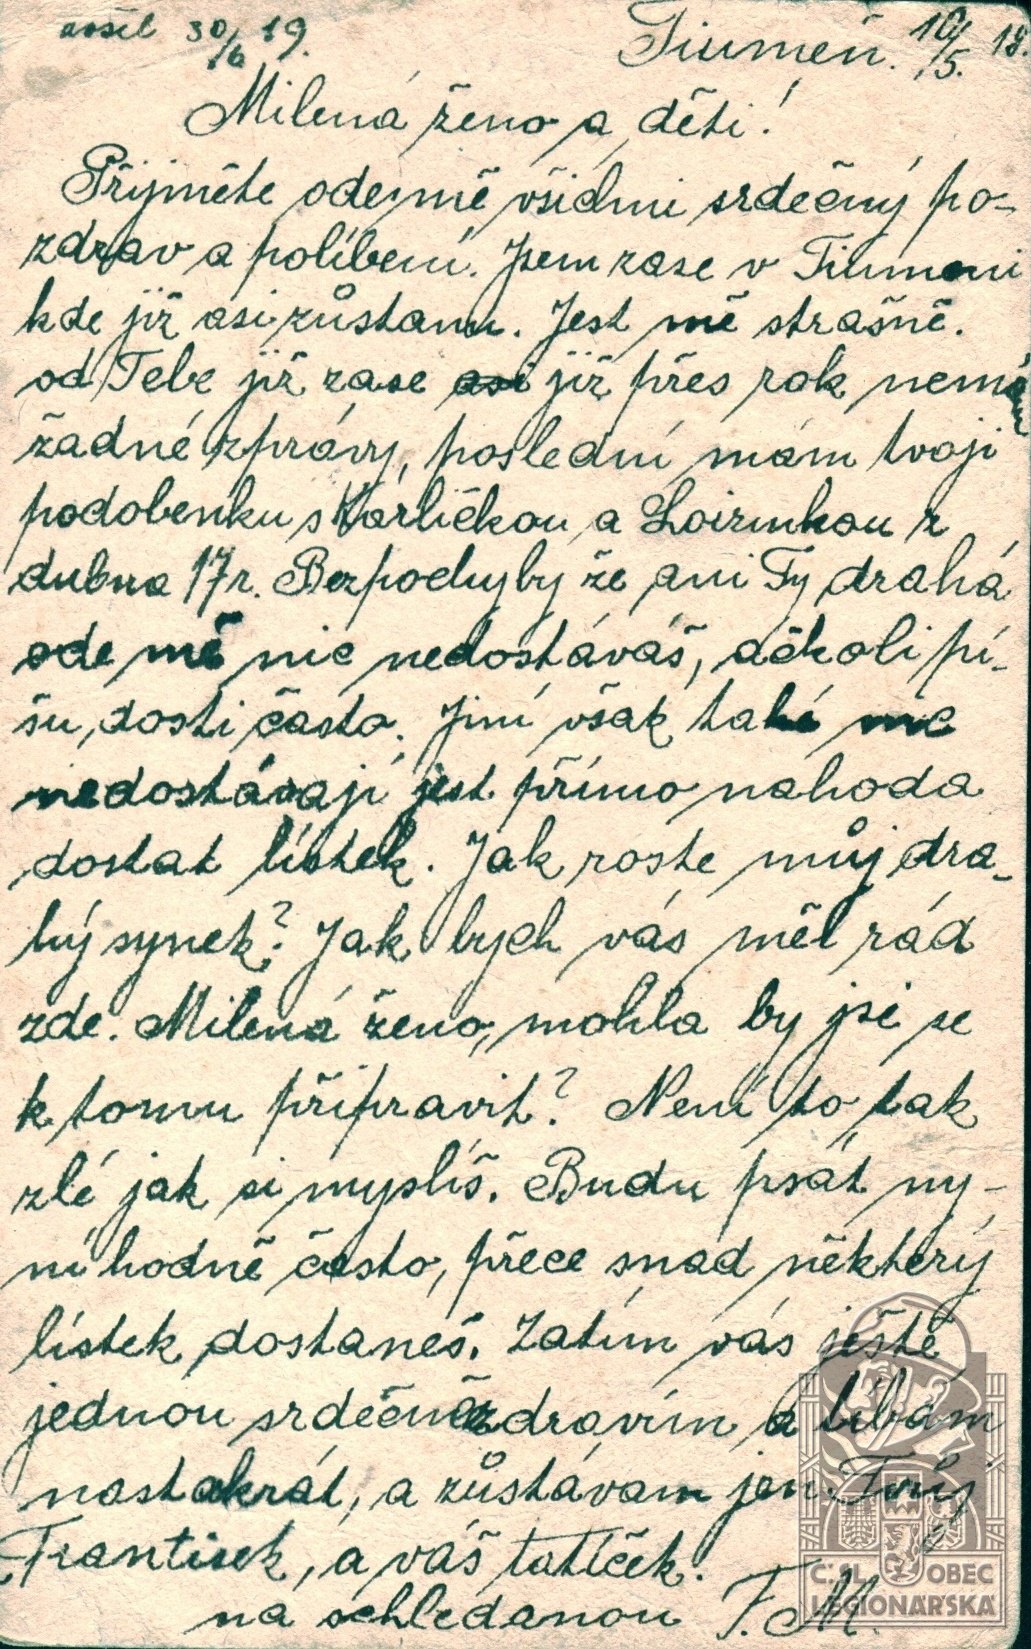 došel 30/6 19. Tiumeň. 10/5. 18.
Milená ženo a děti!
Přijměte odemně všichni srdečný po-
zdrav a políbení. Jsem zase v Tiumeni
kde již asi zůstanu. Jest mě strašně.
od Tebe již zase asi již přes rok nemám
žádné zprávy, poslední mám tvoji
podobenku s Karličkou a Loizinkou z
dubna 17 r. Bezpochyby že ani Ty drahá
ode mě nic nedostáváš, ačkoli pí-
šu dosti často. Jiní však také nic
nedostávají jest přímo nahoda
dostat lístek. Jak roste můj dra-
hý synek? Jak bych vás měl rád
zde. Milená ženo, mohla by jsi se
k tomu připravit? Není to tak
zlé jak si myslíš. Budu psát ny-
ní hodně často, přece snad některý
lístek dostaneš. Zatím vás ještě
jednou srdečně zdravím a líbám
nastokrát, a zůstávam jen Tvůj
František, a váš tatíček.
na schledanou F. M.
ČSL. OBEC
LEGIONÁŘSKÁ